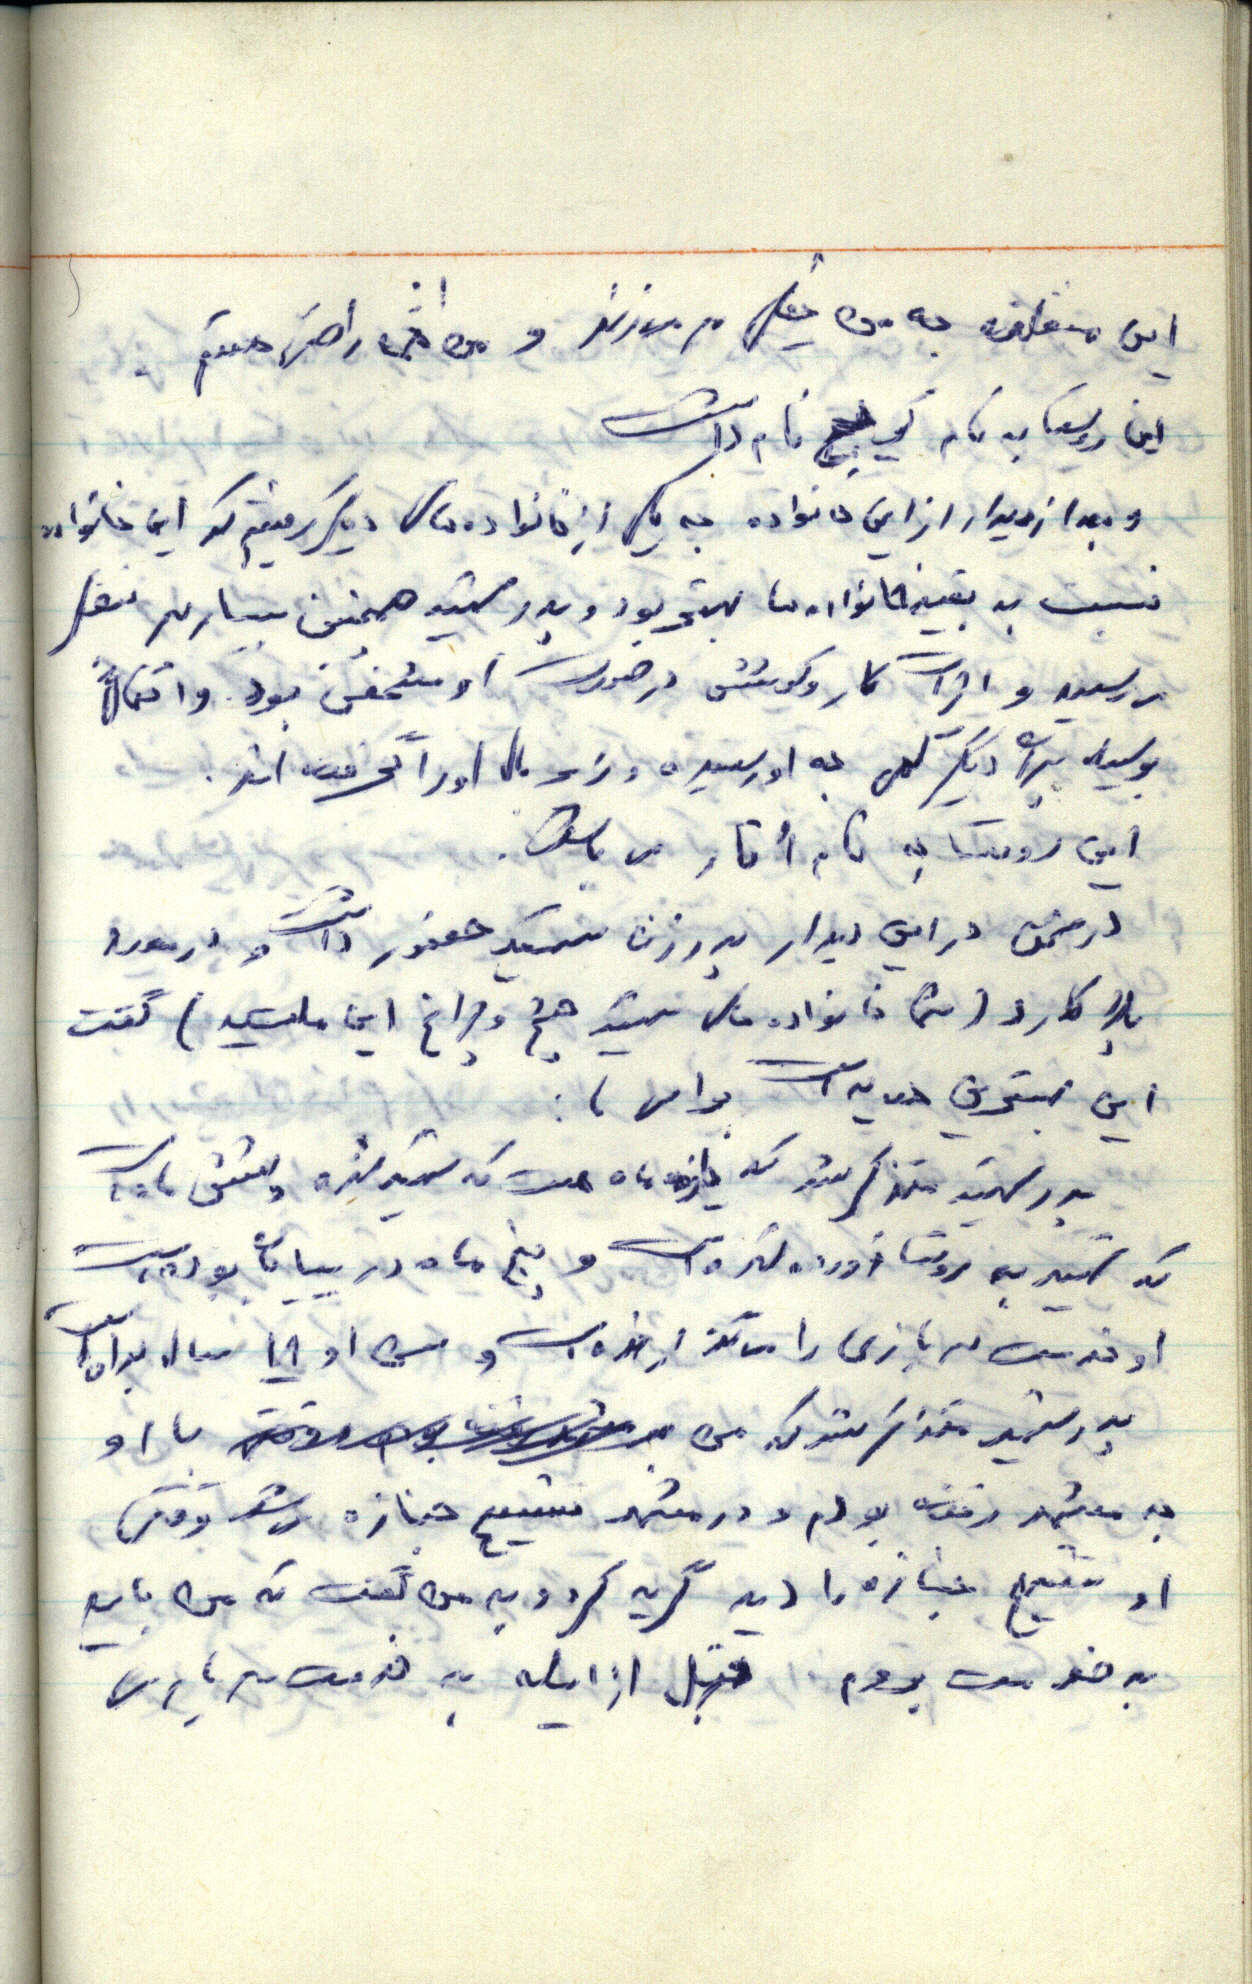 این منطقه به من خیلی سر می‌زنند و من راضی هستم .
این روستا به نام نام داشت
و بعد از دیدار از این خانواده به یکی از خانواده‌های دیگر رفتیم که این خانواده
نسبت به بقیه خانواده‌ها بهتر بود و پدر شهید همچنین بسیار به نظر
می‌رسید و اثرات کار و کوشش در صورت او مشخص بود. و اتفاقاً
بوسیله دیگر به او رسیده و زیر بال او را گرفته‌اند .
این روستا به نام می‌باشد .
در ضمن در این دیدار پدر زن شهید حضور داشت و در مورد
پلاکارد (شما خانواده‌های شهید چشم و چراغ این ملتید) گفت
این بهترین هدیه است برای ما :
پدر شهید متذکر شد که یازده ماه است که شهید شده و شش ماه است
که شهید به روستا آورده شده است و پنج ماه در بیابان بوده است
او خدمت سربازی را می‌گذرانده است و سن او ۱۹ سال بوده است
پدر شهید متذکر شد که من با او
به مشهد رفته بودم و در مشهد تشییع جنازه می‌شد وقتی
او تشییع جنازه را دید گریه کرد و به من گفت که من باید
به خدمت بروم . قبل از اینکه به خدمت سربازی